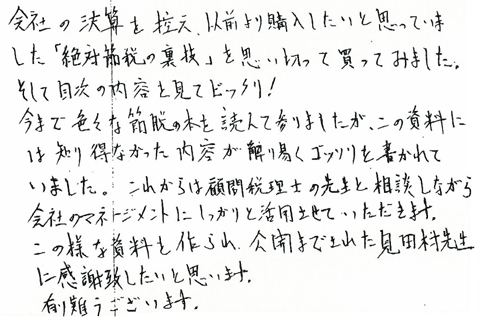 会社の決算を控え、以前より購入したいと思っていま
した「絶対節税の裏技」を思い切って買ってみました。
そして目次の内容を見てビックリ!
今まで色々な節税の本を読んで参りましたが、この資料に
は知り得なかった内容が解り易くゴッソリを書かれて
いました。これからは顧問税理士の先生と相談しながら
会社のマネージメントにしっかりと活用させていただきます。
この様な資料を作られ、公開までされた見田村先生
に感謝致したいと思います。
有難うございます。